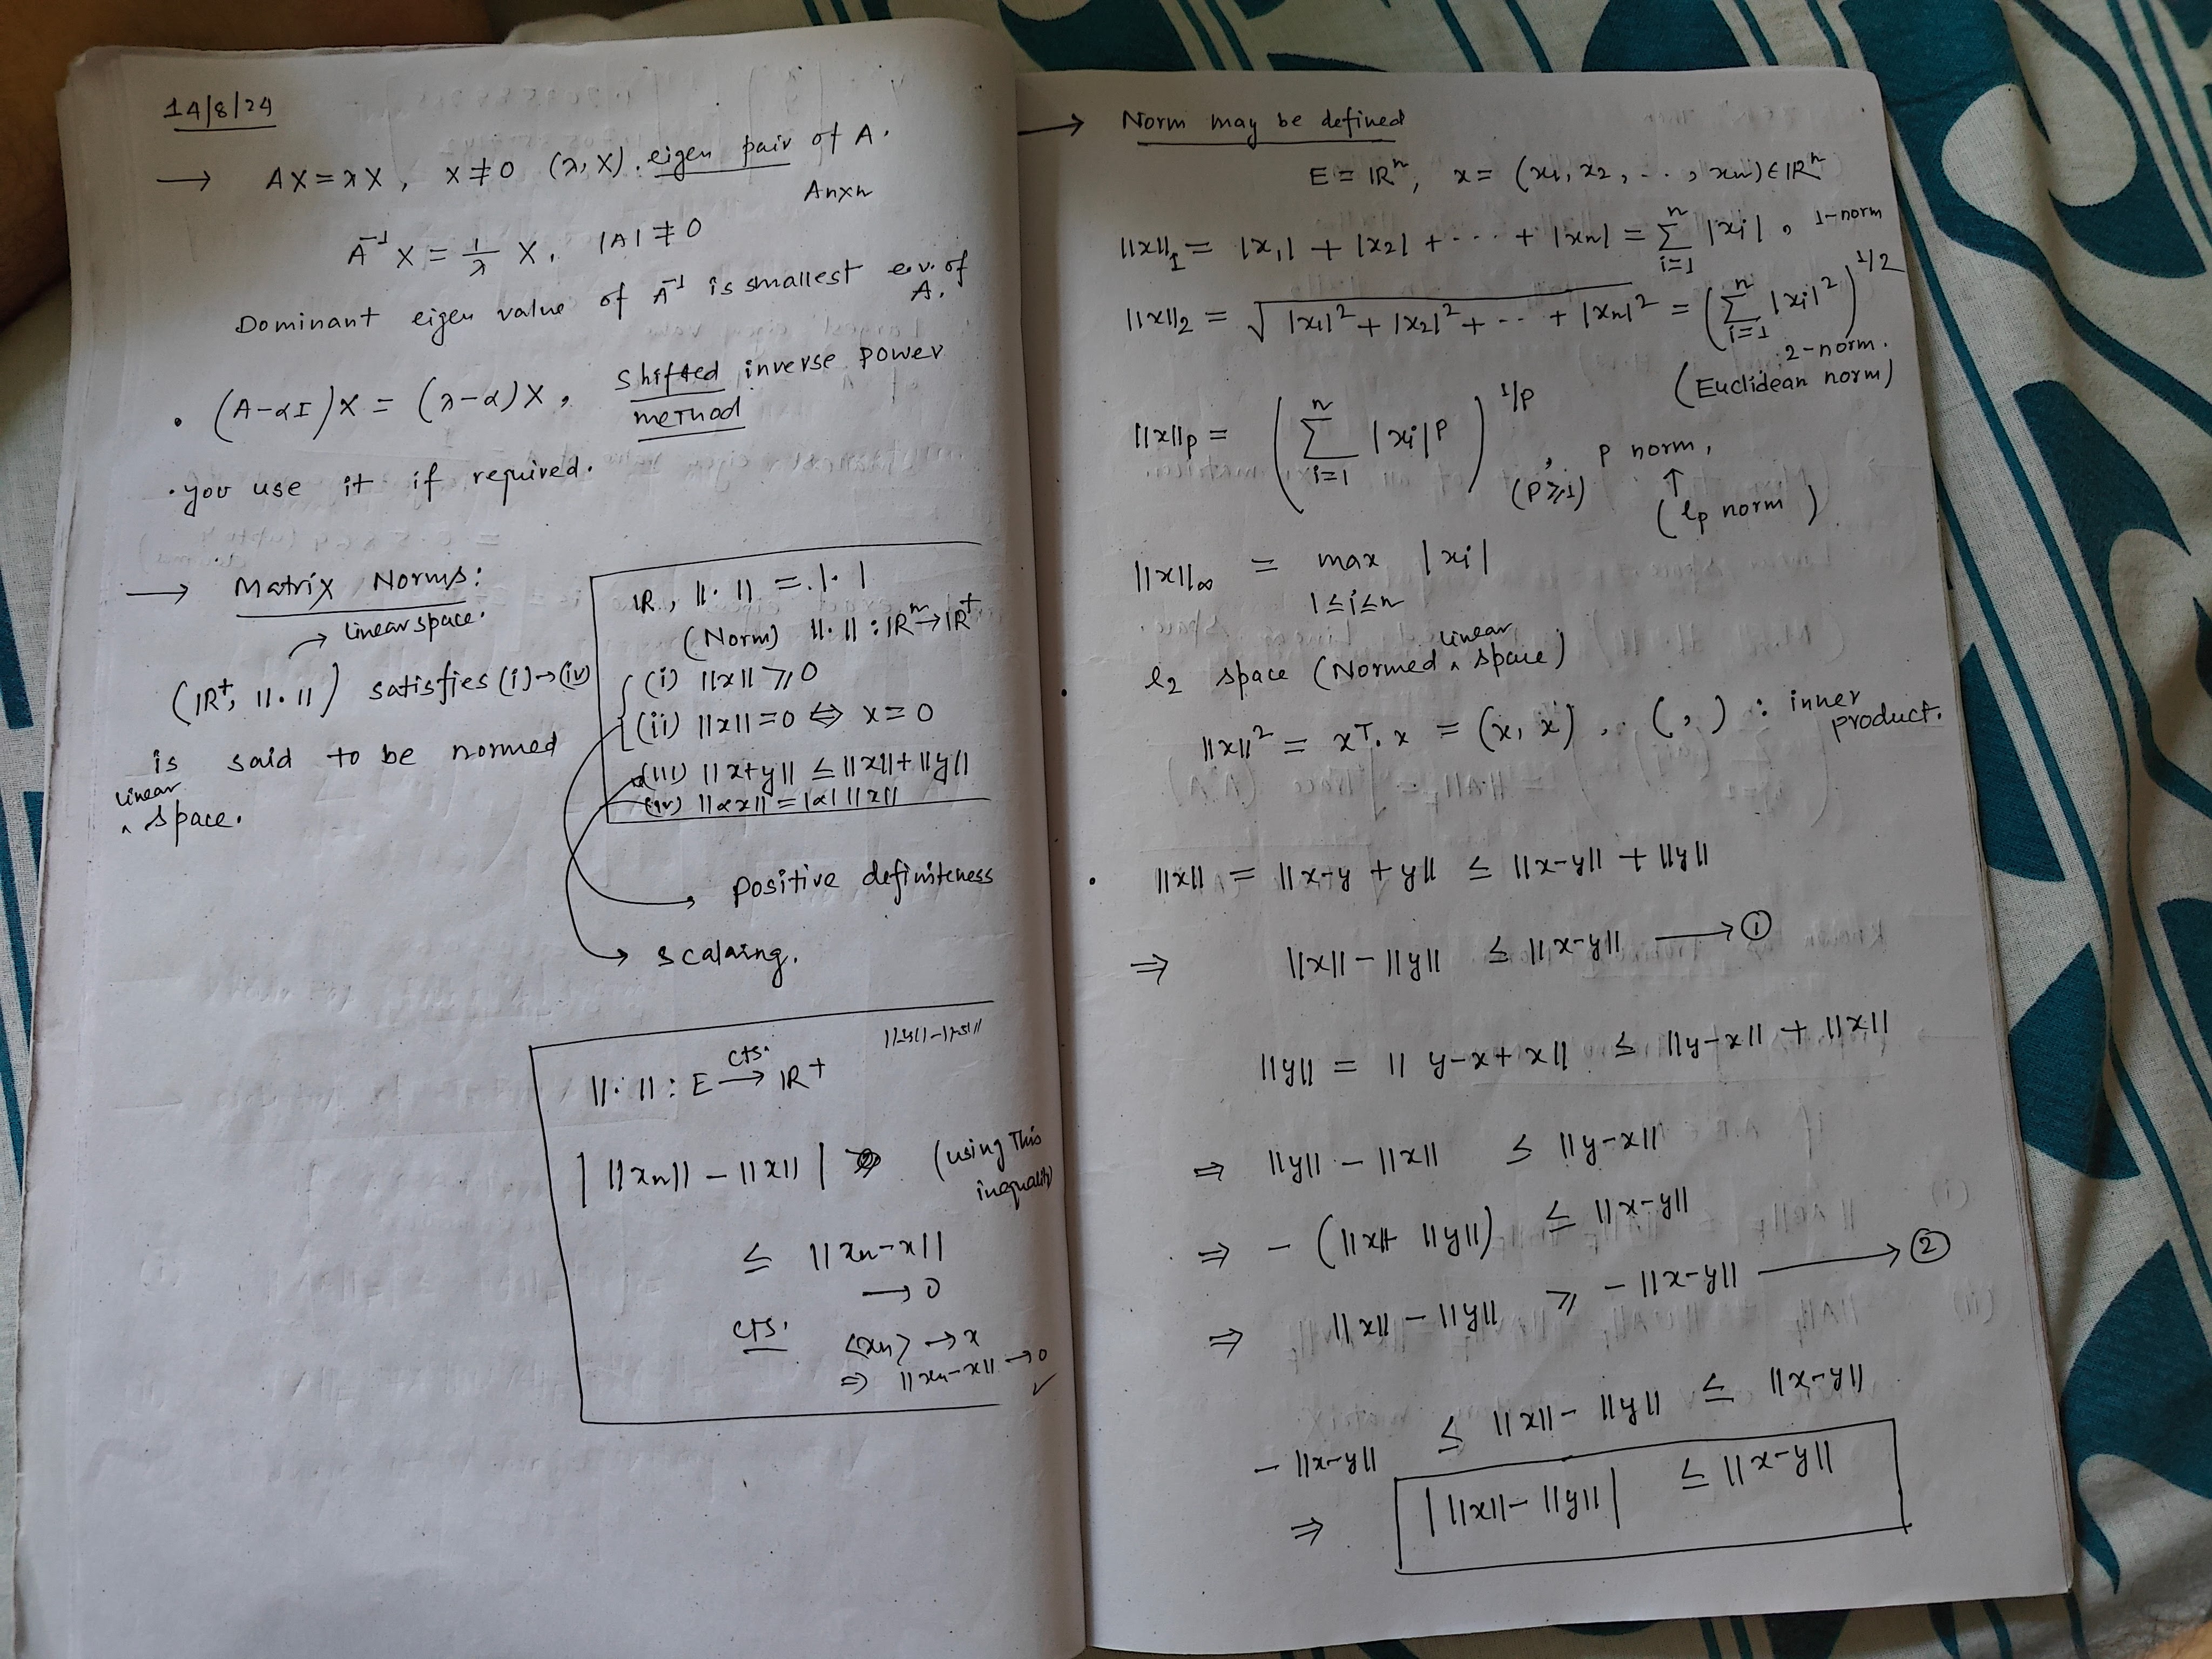 14/8/24
→ AX = λX, X ≠ 0 (λ, X). eigen pair of A.
Anxn
A⁻¹X = 1/λ X, |A| ≠ 0
Dominant eigen value of A⁻¹ is smallest e.v. of A.
• (A-αI)X = (λ-α)X, shifted inverse power method
• you use it if required.
→ Matrix Norms:
→ linear space.
(IR⁺, ||·||) satisfies (i)→(iv)
is said to be normed
linear
^ space.
IR, ||·|| = |·|
(Norm) ||·|| : IRⁿ → IR⁺
(i) ||x|| ≥ 0
(ii) ||x|| = 0 ⇔ x = 0
(iii) ||x+y|| ≤ ||x|| + ||y||
(iv) ||αx|| = |α| ||x||
→ positive definiteness
→ scalaing.
||·|| : E →(cts.) IR⁺
| ||xn|| - ||x|| | (using This inequality)
≤ ||xn-x||
→ 0
cts. <xn> → x
⇒ ||xn-x|| → 0 ✓
→ Norm may be defined
E = IRⁿ, x = (x1, x2, ..., xn) ∈ IRⁿ
||x||₁ = |x1| + |x2| + ---- + |xn| = Σ_{i=1}^{n} |xi|, 1-norm
||x||₂ = √(|x1|² + |x2|² + -- + |xn|²) = (Σ_{i=1}^{n} |xi|²)^{1/2}
2-norm.
(Euclidean norm)
||x||p = (Σ_{i=1}^{n} |xi|^p)^{1/p}, (P≥1) p norm,
↑
(lp norm)
||x||∞ = max |xi|
1≤i≤n
• l2 space (Normed ^ linear space)
||x||² = xᵀ.x = (x, x). (,) : inner product.
• ||x|| = ||x-y+y|| ≤ ||x-y|| + ||y||
⇒ ||x|| - ||y|| ≤ ||x-y|| → ①
||y|| = ||y-x+x|| ≤ ||y-x|| + ||x||
⇒ ||y|| - ||x|| ≤ ||y-x||
⇒ - (||x|| - ||y||) ≤ ||x-y||
⇒ ||x|| - ||y|| ≥ - ||x-y|| → ②
- ||x-y|| ≤ ||x|| - ||y|| ≤ ||x-y||
⇒ | ||x|| - ||y|| | ≤ ||x-y||